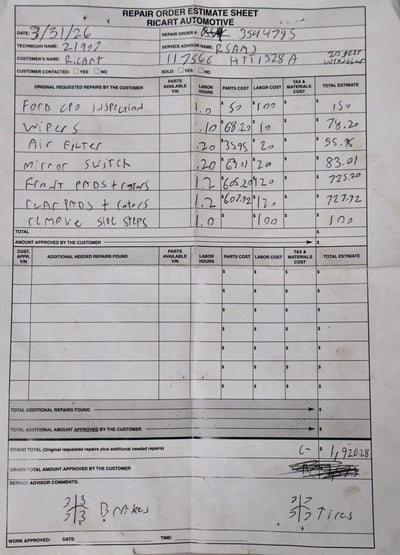 REPAIR ORDER ESTIMATE SHEET
RICART AUTOMOTIVE
DATE: 3/31/26 REPAIR ORDER #: 3544795
TECHNICIAN NAME: 21907 SERVICE ADVISOR NAME:
CUSTOMER'S NAME: Ricart 117566 HTT1328A
CUSTOMER CONTACTED: YES NO SOLD: YES NO
ORIGINAL REQUESTED REPAIRS BY THE CUSTOMER PARTS AVAILABLE Y/N LABOR HOURS PARTS COST LABOR COST TAX & MATERIALS COST TOTAL ESTIMATE
FORD CPO INSPECTION 1.0 $50 $100 $150
WIPERS .10 $68.20 $10 $78.20
AIR FILTER .20 $35.95 $20 $55.95
MIRROR SWITCH .20 $63.01 $20 $83.01
FRONT PADS + rotors 1.2 $605.20 $120 $725.20
rear PADS + rotors 1.2 $607.92 $120 $727.92
remove side steps 1.0 $ $100 $100
TOTAL $
AMOUNT APPROVED BY THE CUSTOMER $
CUST. APPR. Y/N ADDITIONAL NEEDED REPAIRS FOUND PARTS AVAILABLE Y/N LABOR HOURS PARTS COST LABOR COST TAX & MATERIALS COST TOTAL ESTIMATE
TOTAL ADDITIONAL REPAIRS FOUND $
TOTAL ADDITIONAL AMOUNT APPROVED BY THE CUSTOMER $
GRAND TOTAL (Original requested repairs plus additional needed repairs) $ 1,920.28
GRAND TOTAL AMOUNT APPROVED BY THE CUSTOMER
SERVICE ADVISOR COMMENTS:
3 3 Brakes 7 7 Tires
3 3 7 7
WORK APPROVED: DATE: TIME: